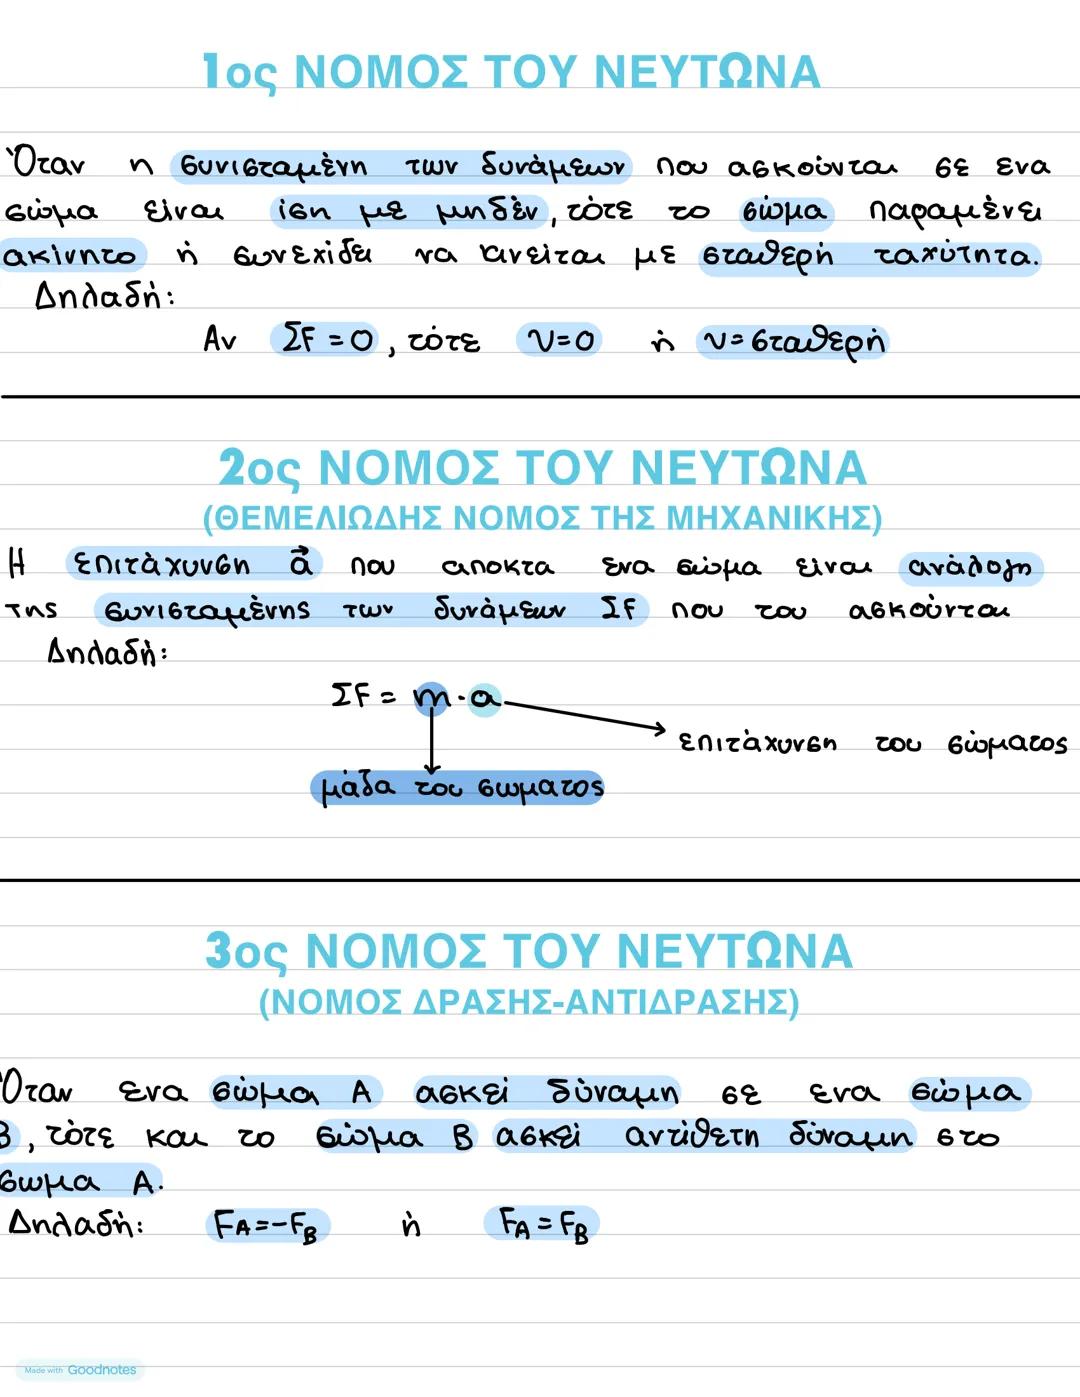 1ος ΝΟΜΟΣ ΤΟΥ ΝΕΥΤΩΝΑ
Όταν η συνισταμένη των δυνάμεων που ασκούνται σε ενα
σώμα είναι ίση με μηδέν, τότε το σώμα παραμένει
ακίνητο ή συνεχίζει να κινείται με σταθερή ταχύτητα.
Δηλαδή:
Αν ΣF = 0, τότε υ=0 ή υ= σταθερή
2ος ΝΟΜΟΣ ΤΟΥ ΝΕΥΤΩΝΑ
(ΘΕΜΕΛΙΩΔΗΣ ΝΟΜΟΣ ΤΗΣ ΜΗΧΑΝΙΚΗΣ)
Η επιτάχυνση a⃗ που αποκτα ενα σώμα είναι ανάλογη
της συνισταμένης των δυνάμεων ΣF που του ασκούνται
Δηλαδή:
ΣF = m · a
επιτάχυνση του σώματος
μάζα του σωματος
3ος ΝΟΜΟΣ ΤΟΥ ΝΕΥΤΩΝΑ
(ΝΟΜΟΣ ΔΡΑΣΗΣ-ΑΝΤΙΔΡΑΣΗΣ)
Όταν ενα σώμα Α ασκεί δύναμη σε ενα σώμα
Β, τότε και το σώμα Β ασκεί αντίθετη δύναμη στο
σωμα Α.
Δηλαδή: FA=-FB ή FA = FB
Made with Goodnotes